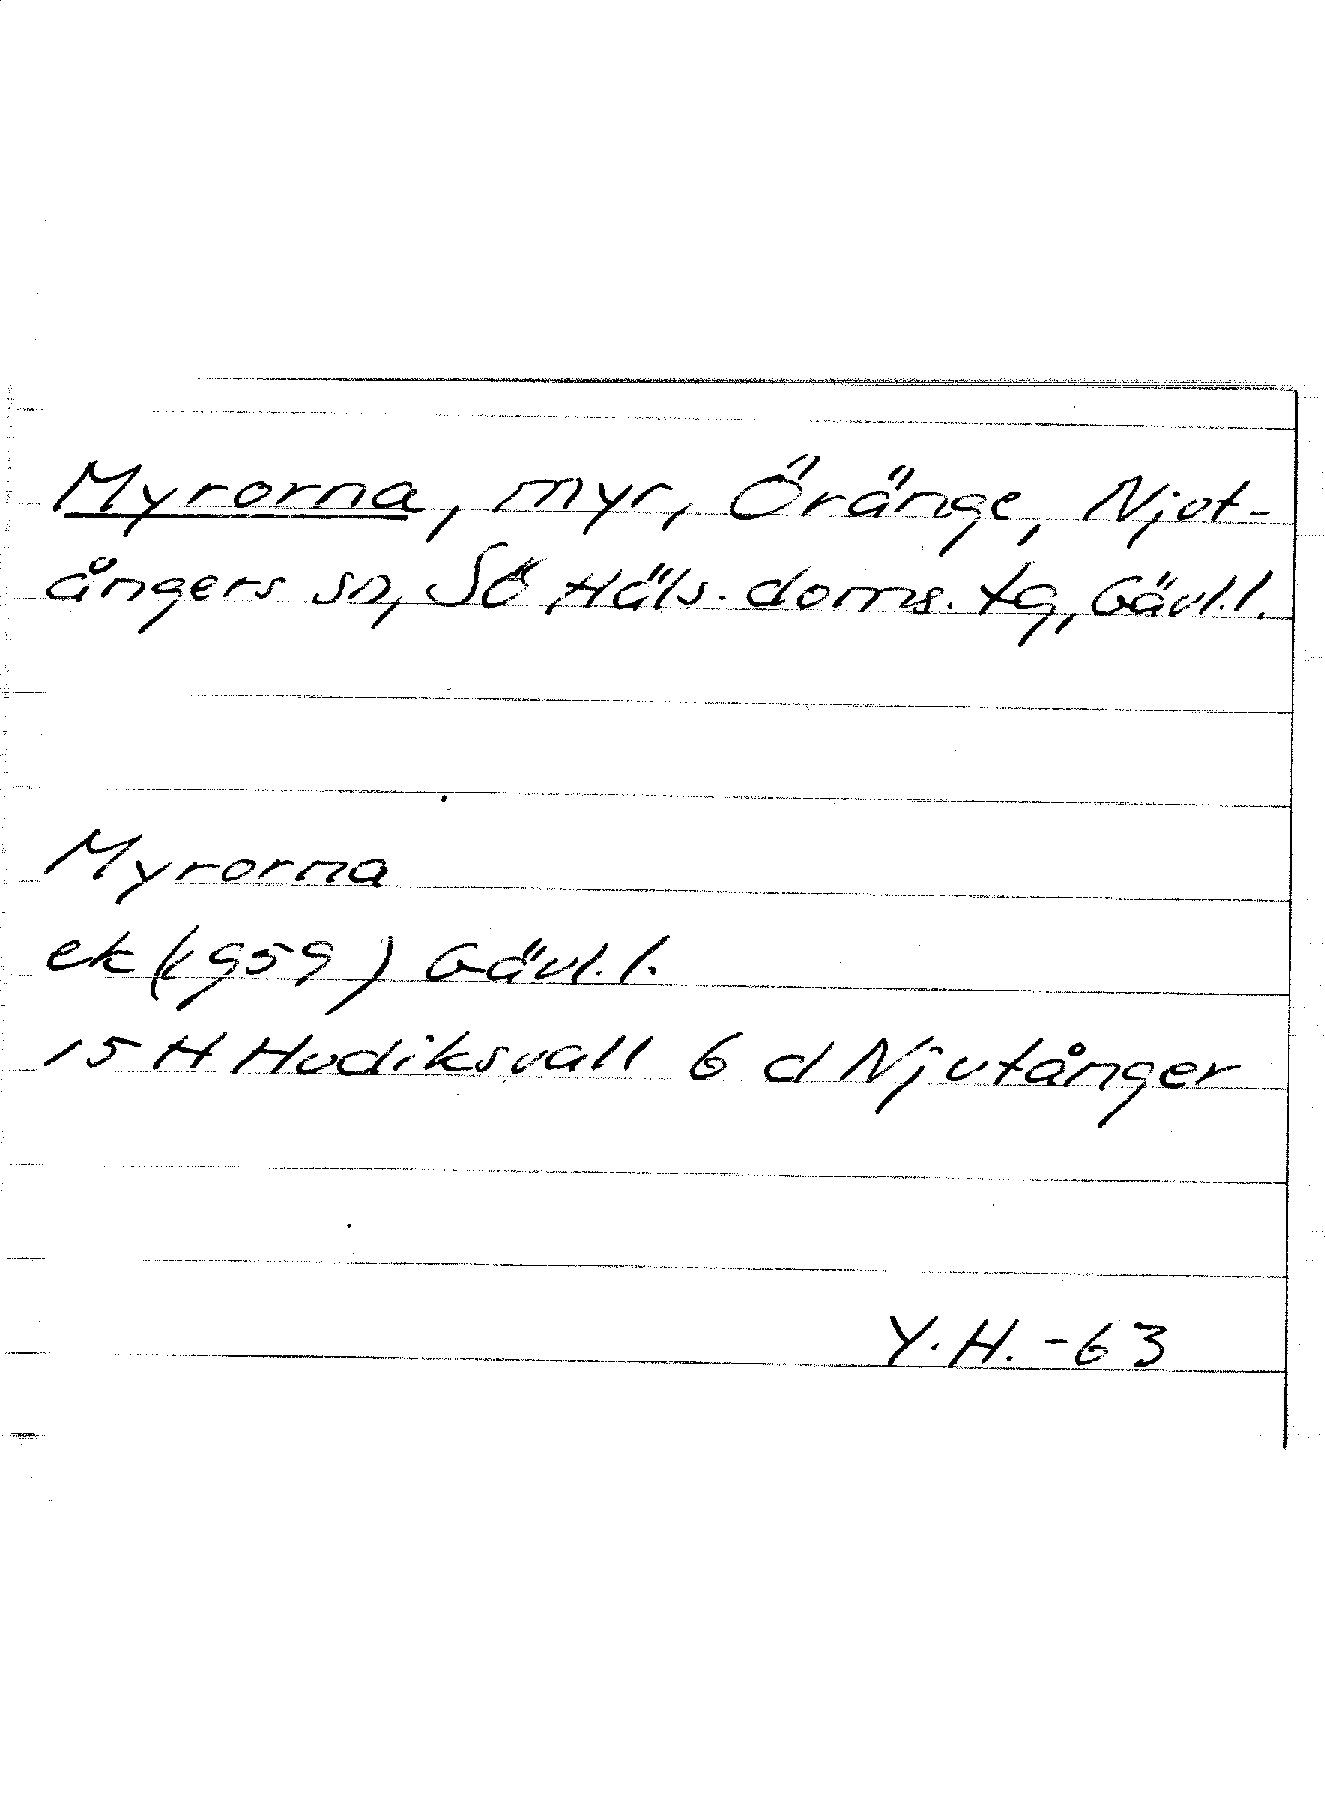 Myrorna, myr, Öränge, Njut-
ångers sn, Sö Häls. doms. tg, Gävl.l.
Myrorna
ek (1959) Gävl.l.
15 H Hudiksvall 6 d Njutånger
Y.H. -63